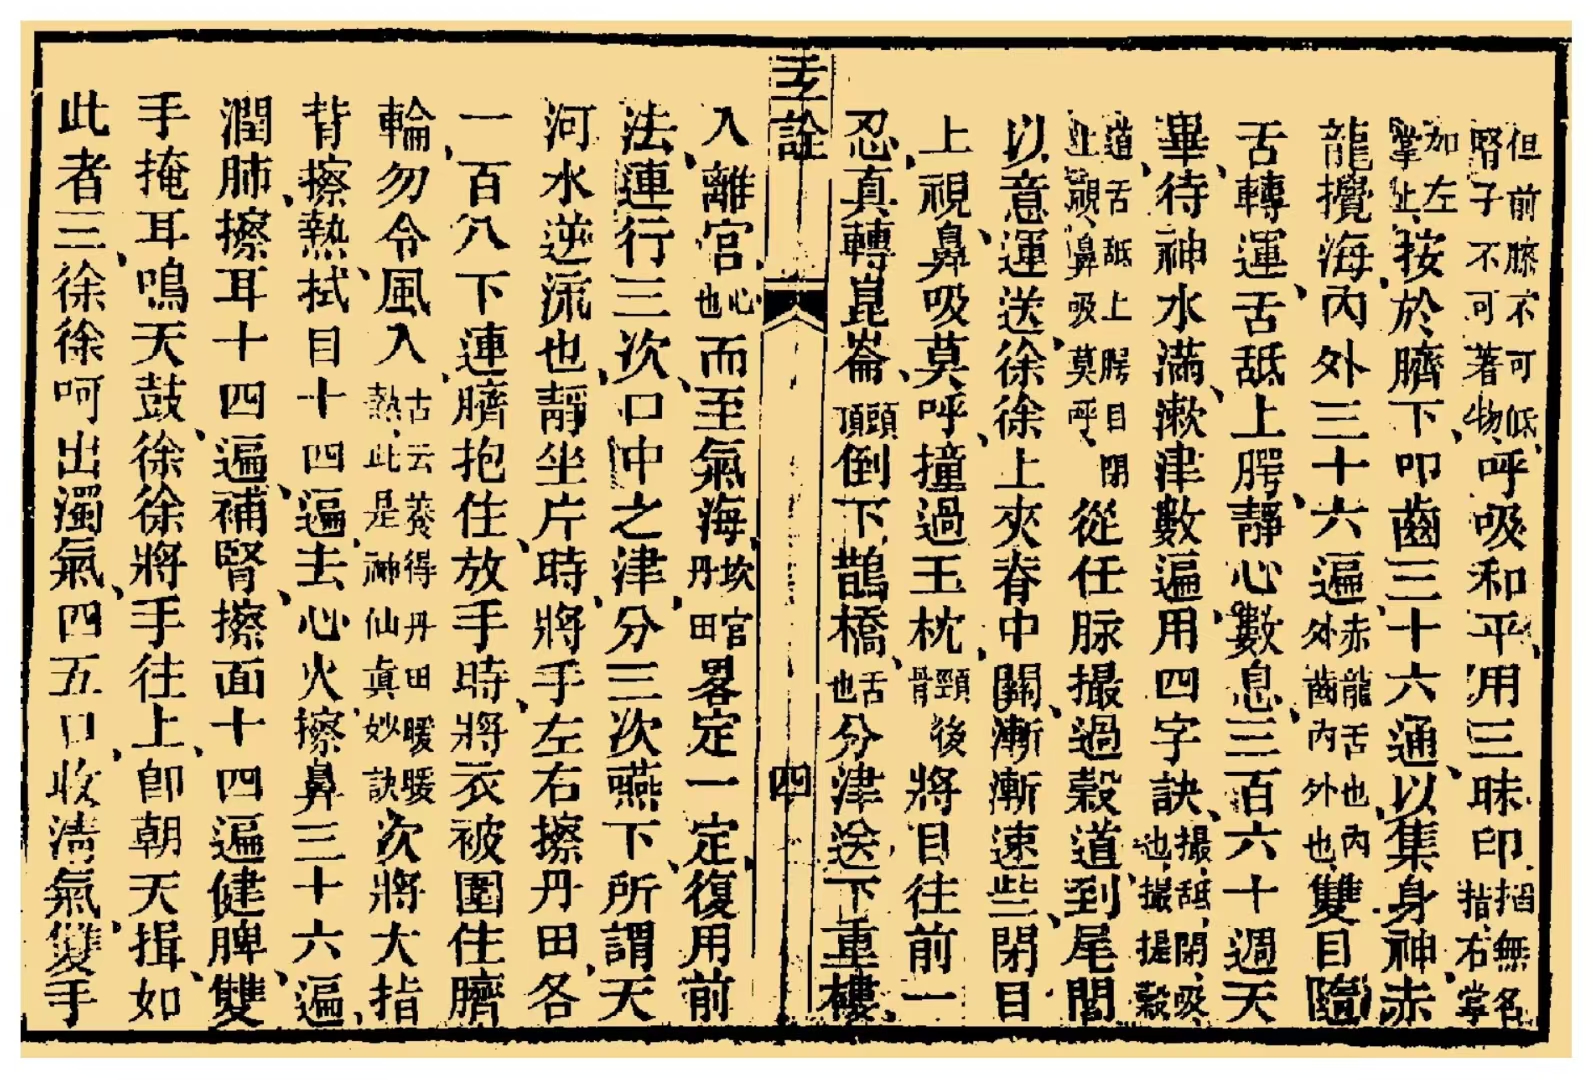 但前膝不可低腎子不可著物呼吸和平用三昧印掐無名指右掌
加左掌上按於臍下叩齒三十六通以集身神赤
龍攪海內外三十六遍赤龍舌也內外齒內外也雙目隨
舌轉運舌舐上腭靜心數息三百六十週天
畢待神水滿漱津數遍用四字訣撮舐閉吸也撮提穀
道舌舐上腭目閉上視鼻吸莫呼從任脉撮過穀道到尾閭
以意運送徐徐上夾脊中關漸漸速些閉目
上視鼻吸莫呼撞過玉枕頸後骨將目往前一
忍真轉崑崙頭頂倒下鵲橋舌也分津送下重樓
玉詮
四
入離宮心也而至氣海坎宮丹田畧定一定復用前
法連行三次口中之津分三次燕下所謂天
河水逆流也靜坐片時將手左右擦丹田各
一百八下連臍抱住放手時將衣被圍住臍
輪勿令風入古云養得丹田暖暖熱此是神仙眞妙訣次將大指
背擦熱拭目十四遍去心火擦鼻三十六遍
潤肺擦耳十四遍補腎擦面十四遍健脾雙
手掩耳鳴天鼓徐徐將手往上卽朝天揖如
此者三徐徐呵出濁氣四五口收淸氣雙手